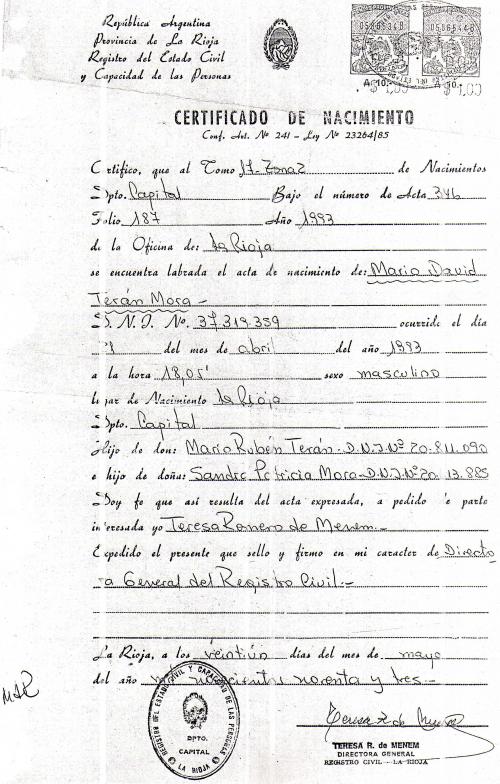 República Argentina
Provincia de La Rioja
Registro del Estado Civil
y Capacidad de las Personas
A 10.- A 10.-
$ 1,00 $ 1,00
CERTIFICADO DE NACIMIENTO
Conf. Art. Nº 241 - Ley Nº 23264/85
C rtifico, que al Tomo 17-Zona2 de Nacimientos
Dpto. Capital Bajo el número de Acta 346
Folio 187 Año 1993
de la Oficina de: La Rioja
se encuentra labrada el acta de nacimiento de: Mario David
Terán Mora -
D. N. I. No. 37.319.359 ocurrido el día
del mes de abril del año 1993
a la hora 18,05' sexo masculino
lugar de Nacimiento La Rioja
Dpto. Capital
Hijo de don: Mario Rubén Terán-D.N.I.Nº 20.811.090
e hijo de doña: Sandra Patricia Mora-D.N.I.Nº 20. 13.885
Doy fe que así resulta del acta expresada, a pedido e parte
interesada yo Teresa Romero de Menem.-
Expedido el presente que sello y firmo en mi caracter de Directo
ra General del Registro Civil.-
La Rioja, a los veintiún días del mes de mayo
del año mil novecientos noventa y tres.-
REGISTRO DEL ESTADO CIVIL Y CAPACIDAD DE LAS PERSONAS
DPTO.
CAPITAL
LA RIOJA
Teresa R. de Menem
TERESA R. de MENEM
DIRECTORA GENERAL
REGISTRO CIVIL - LA RIOJA